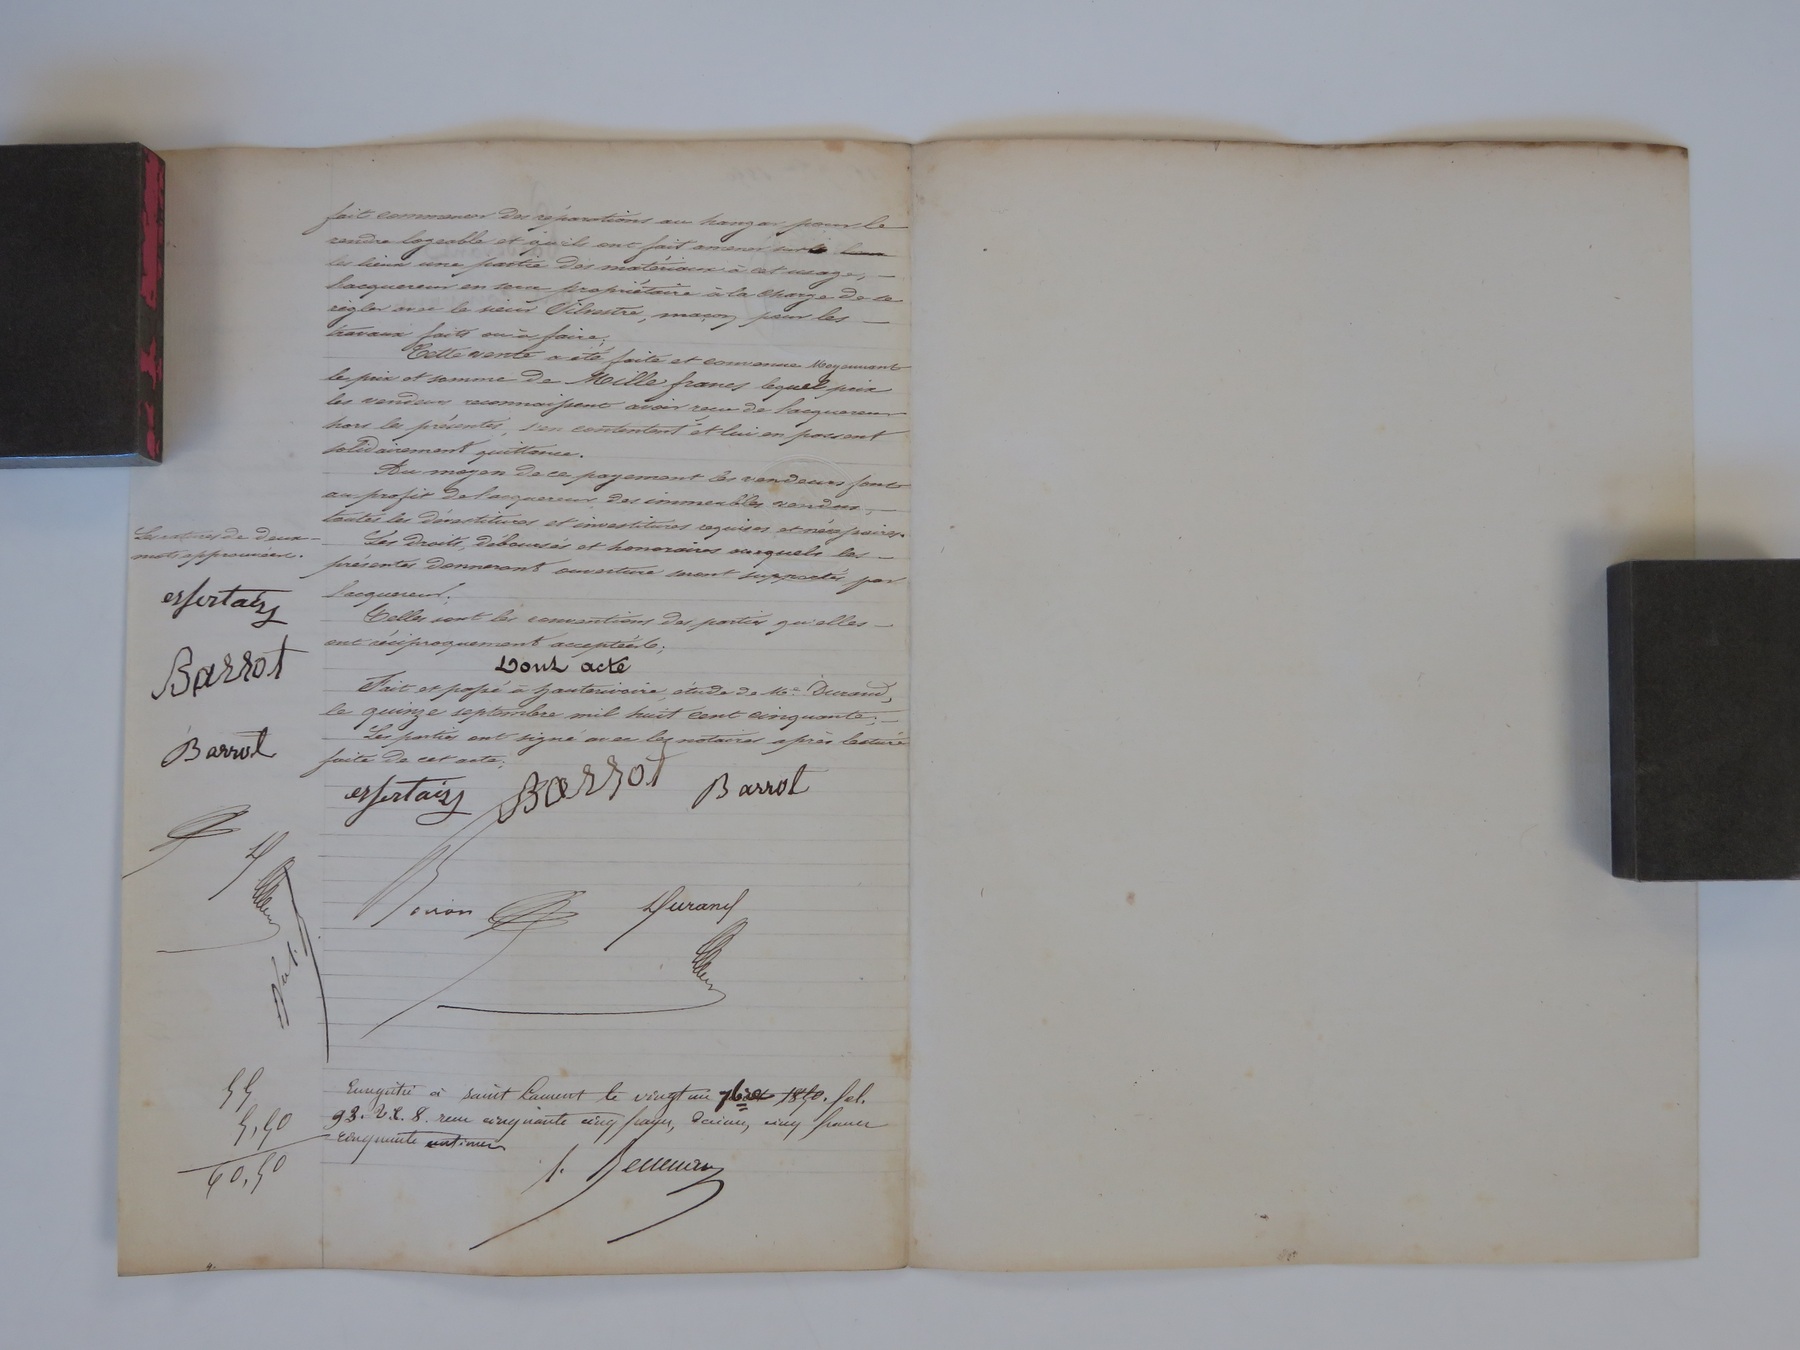 fait commencer des réparations au hangar pour le
rendre logeable et qu'ils ont fait amener sur le lieux
les lieux une partie des matériaux à cet usage, —
l'acquéreur en sera propriétaire à la charge de se
régler avec le sieur Silvestre, maçon pour les —
travaux faits ou à faire;
Cette vente a été faite et convenue moyennant
le prix et somme de Mille francs lequel prix
les vendeurs reconnaissent avoir reçu de l'acquéreur
hors les présentes, s'en contentent et lui en passent
solidairement quittance.
Au moyen de ce payement les vendeurs font
au profit de l'acquéreur des immeubles vendus, —
toutes les dévestitures et investitures requises et nécessaires.
Les droits, déboursés et honoraires auxquels les —
présentes donneront ouverture seront supportés par
l'acquéreur;
Telles sont les conventions des parties qu'elles —
ont réciproquement acceptées;
Dont acte
Fait et passé à hauterivoire, étude de Me Durand,
le quinze septembre mil huit cent cinquante; —
Les parties ont signé avec les notaires après lecture
faite de cet acte;
Barrot Barrot
Durand
Les ratures de deux —
mots approuvées.
Barrot
Barrot
55
5,50
60,50
Enregistré à saint Laurent le vingt un 7bre 1850. fol.
93. V. C. 8. reçu cinquante cinq francs, décime, cinq francs
cinquante centimes